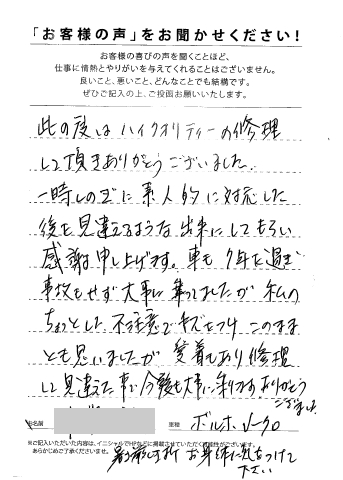 「お客様の声」をお聞かせください！
お客様の喜びの声を聞くことほど、
仕事に情熱とやりがいを与えてくれることはございません。
良いこと、悪いこと、どんなことでも結構です。
ぜひご記入の上、ご投函お願いいたします。
此の度はハイクオリティーの修理
して頂きありがとうございました。
一時しのぎに素人的に対応した
後を見違えるような出来にしてもらい
感謝申し上げます。車も7年を過ぎ
事故もせず大事に乗ってましたが私の
ちょっとした不注意でキズをつけ このまま
とも思いましたが 愛着もあり修理
して見違えた事で今後も大事に乗ります ありがとう
ございました
お名前
車種 ボルボ
※ご記入いただいた内容は、イニシャルでHPなどに掲載させていただく可能性がございます。
あらかじめご了承くださいませ。
お身体に気をつけて
下さい